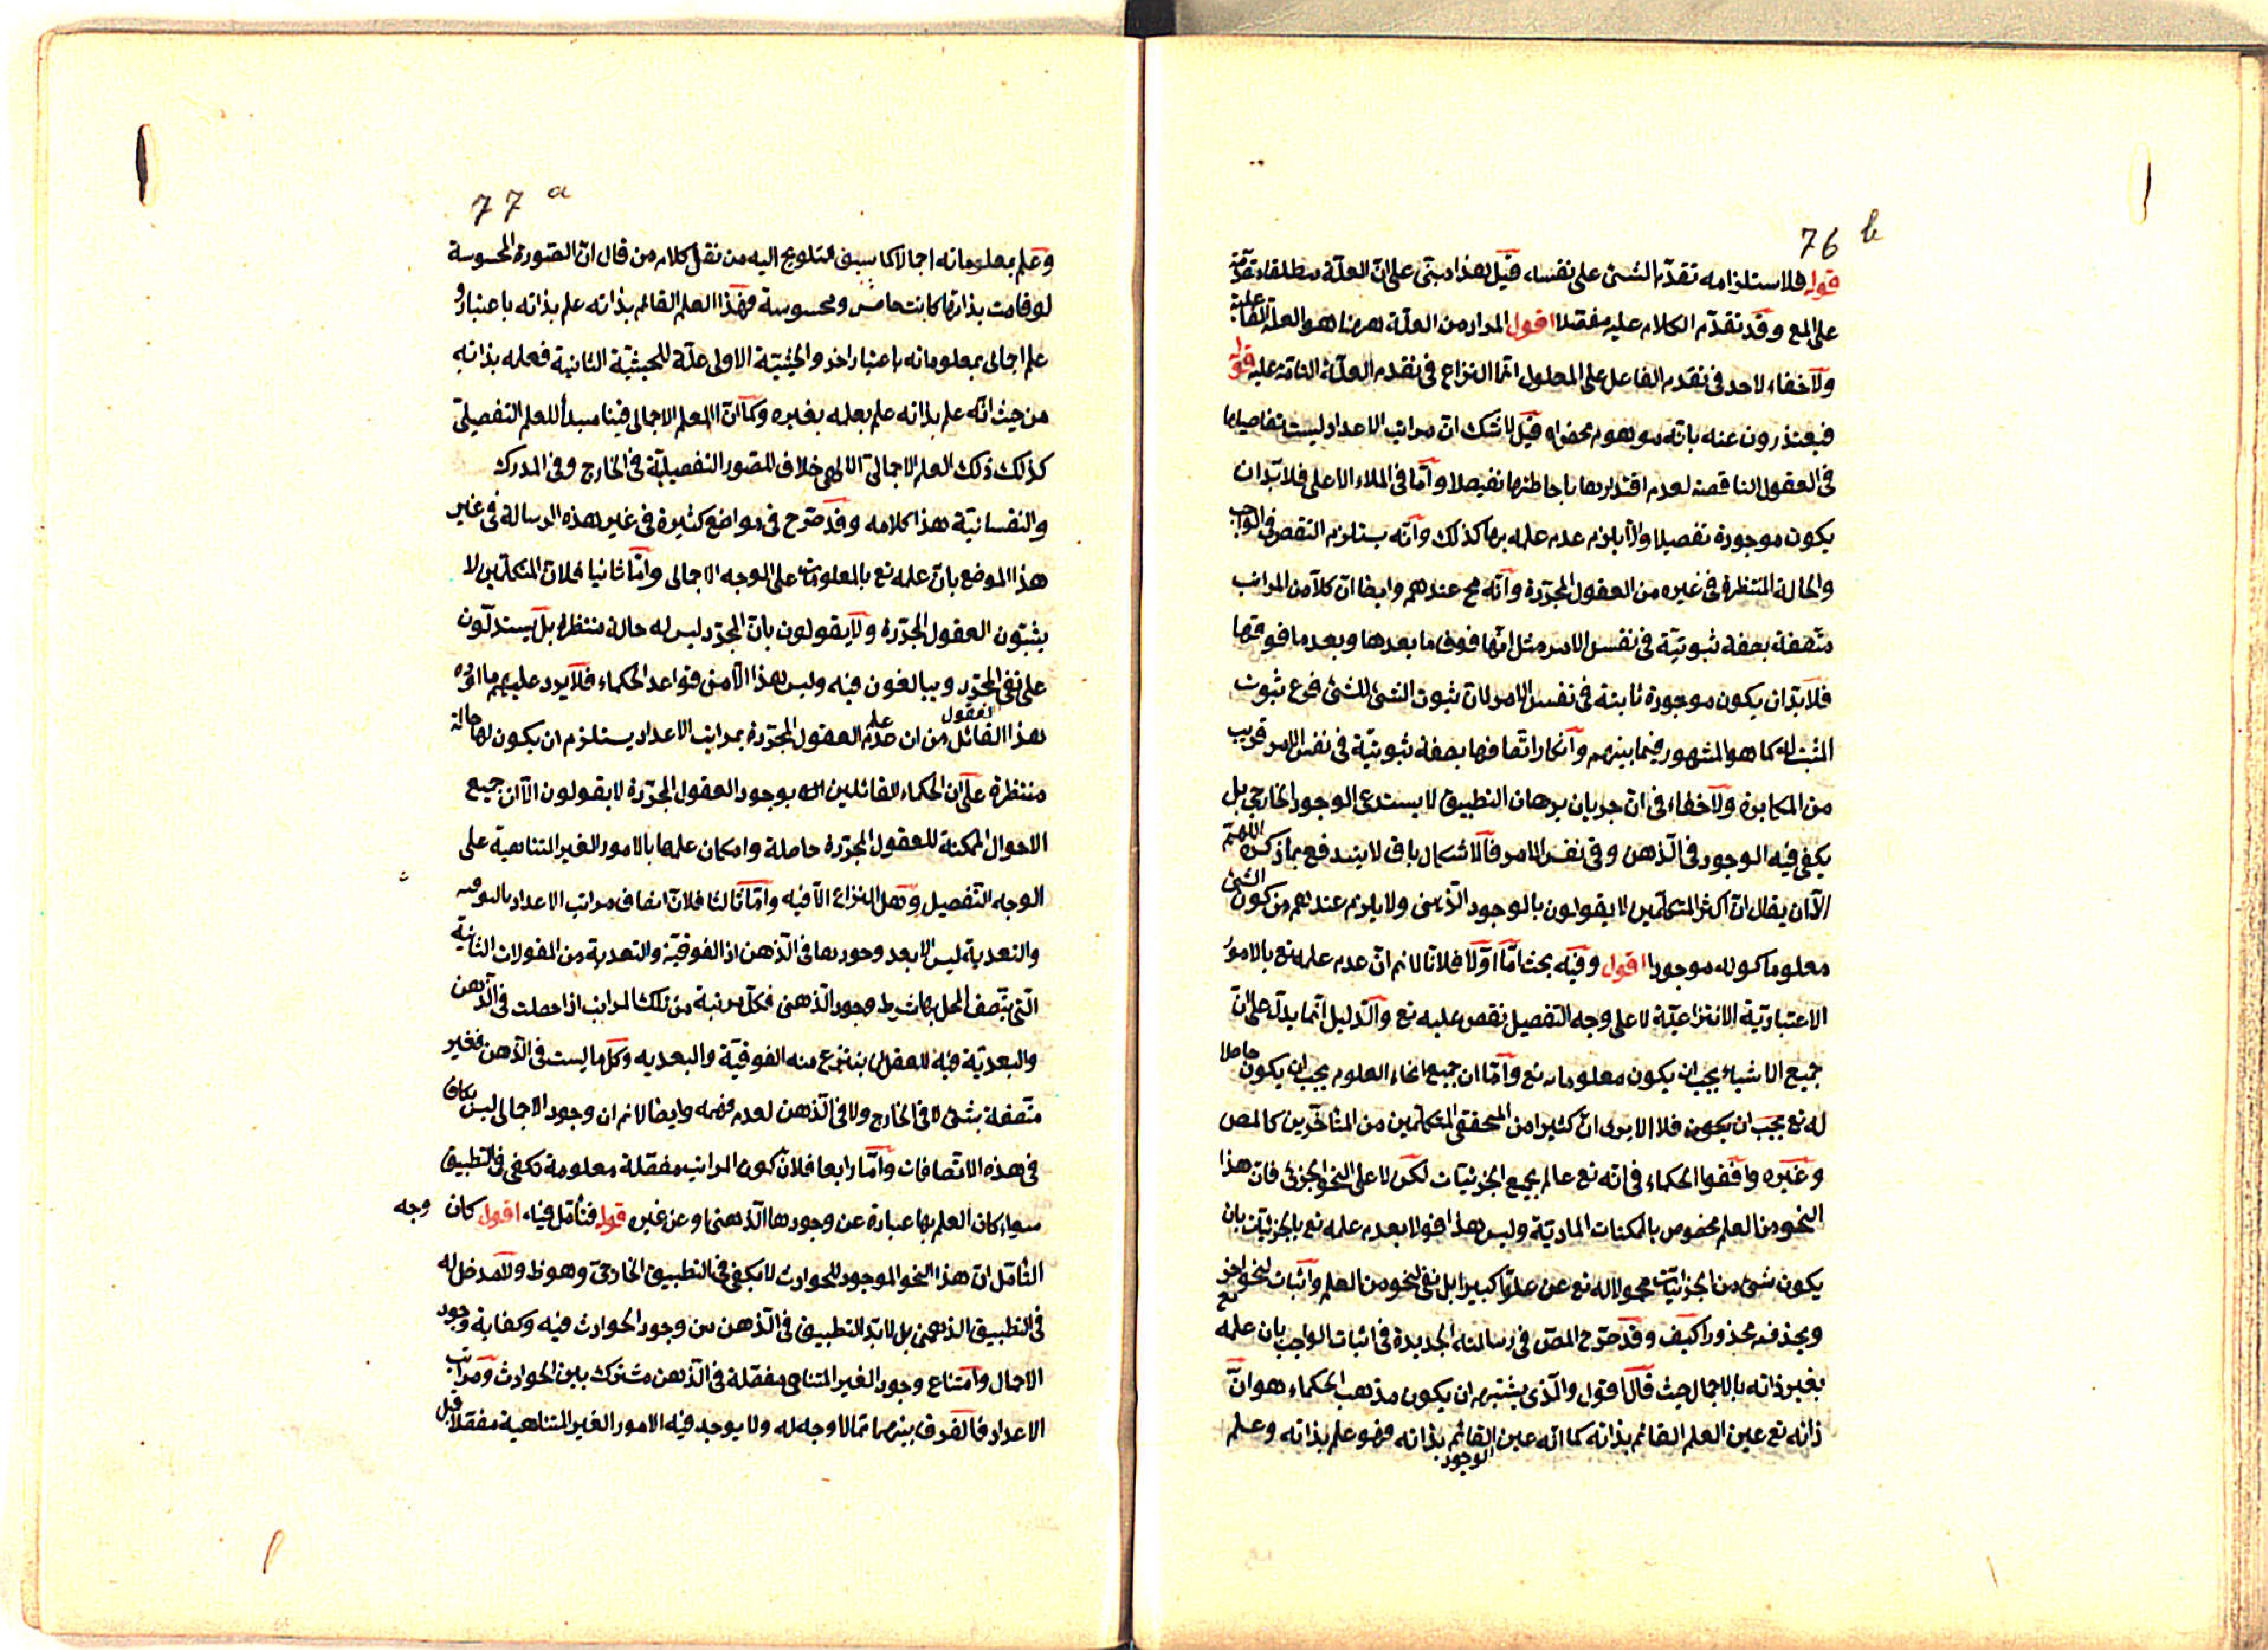 76 b
قوله فلاستلزامه تقدم الشئ على نفسه قيل هذا مبنى على ان العلة مطلقا متقدمة
على المع وقد تقدم الكلام عليه مفصلا اقول المراد من العلة ههنا هو العلة الفاعلية
ولا خفاء لاحد فى تقدم الفاعل على المعلول انما النزاع فى تقدم العلة التامة عليه قوله
فيعتذرون عنه بانه موهوم محض اه قيل لا شك ان مراتب الاعداد ليست تفاصيلها
فى العقول الناقصة لعدم اقتدارها باحاطتها تفصيلا واما فى الملاء الاعلى فلا بد ان
يكون موجودة تفصيلا والا يلزم عدم علمه بها كذلك وانه يستلزم النقص فى الواجب
والحالة المنتظرة فى غيره من العقول المجردة وانه مح عندهم وايضا ان كلا من المراتب
متصفة بصفة ثبوتية فى نفس الامر مثل انها فوق ما بعدها وبعد ما فوقها
فلا بد ان يكون موجودة ثابتة فى نفس الامر لان ثبوت الشئ للشئ فرع ثبوت
المثبت له كما هو المشهور فيما بينهم وانكار اتصافها بصفة ثبوتية فى نفس الامر قريب
من المكابرة ولا خفاء فى ان جريان برهان التطبيق لا يستدعى الوجود الخارجى بل
يكفى فيه الوجود فى الذهن وفى نفس الامر فالاشكال باق لا يندفع بما ذكره اللهم
الا ان يقال ان اكثر المتكلمين لا يقولون بالوجود الذهنى ولا يلزم عندهم من كون الشئ
معلوما كونه موجودا اقول وفيه بحث اما اولا فلانا لا نم ان عدم علمه تع بالامور
الاعتبارية الانتزاعية لا على وجه التفصيل نقص عليه تع والدليل انما يدل على ان
جميع الاشياء يجب ان يكون معلوما له تع واما ان جميع انحاء العلوم يجب ان يكون حاصلا
له تع يجب ان يكون فلا الا يرى ان كثيرا من المحققى المتكلمين من المتأخرين كالمص
وغيره وافقوا الحكماء فى انه تع عالم بجميع الجزئيات لكن لا على النحو الجزئى فان هذا
النحو من العلم مخصوص بالممكنات المادية وليس هذا قولا بعدم علمه تع بالجزئيات بان
يكون شئ من الجزئيات مجهولا له تع عن علوا كبيرا بل نفى لنحو من العلم واثبات لنحو اخر
محذورا كيف وقد صرح المص فى رسالته الجديدة فى اثبات الواجب بان علمه تع
بغير ذاته بالاجمال حيث قال اقول والذى يشتبه ان يكون مذهب الحكماء هو ان
ذاته تع عين العلم القائم بذاته كما انه عين الوجود القائم بذاته فهو علم بذاته وعلم
77 a
وعلم بمعلوماته اجمالا كما سبق التلويح اليه من نقل كلام من قال ان الصورة المحسوسة
لو قامت بذاتها كانت حاس ومحسوسة فهذا العلم القائم بذاته علم بذاته باعتبار و
علم اجمالى بمعلوماته باعتبار اخر والحيثية الاولى علة للحيثية الثانية فعلمه بذاته
من حيث انه علم بذاته علم بعلمه بغيره وكما ان العلم الاجمالى فينا مبدأ للعلم التفصيلى
كذلك ذلك العلم الاجمالى الالهى خلاف للصور التفصيلية فى الخارج وفى المدرك
والنفسانية هذا كلامه وقد صرح فى مواضع كثيرة فى غير هذه الرسالة فى غير
هذا الموضع بان علمه تع بالمعلومات على الوجه الاجمالى واما ثانيا فلان المتكلمين لا
يثبتون العقول المجردة ولا يقولون بان المجرد ليس له حالة منتظرة بل يستدلون
على نفى المجرد ويبالغون فيه وليس هذا الا من قواعد الحكماء فلا يرد عليهم ما اورده
هذا القائل من ان عدم علم العقول العقول المجردة بمراتب الاعداد يستلزم ان يكون لها حالة
منتظرة على ان الحكماء القائلين بوجود العقول المجردة لا يقولون الا ان جميع
الاحوال الممكنة للعقول المجردة حاصلة وامكان علمها بالامور الغير المتناهية على
الوجه التفصيل وهل النزاع الا فيه واما ثالثا فلان اتصاف مراتب الاعداد بالفوقية
والبعدية ليس الا بعد وجودها فى الذهن اذ الفوقية والبعدية من المقولات الثانية
التى يتصف المحل بها شرط وجود الذهنى فكل مرتبة من تلك المراتب اذا حصلت فى الذهن
والبعدية فيه للعقل ينتزع منه الفوقية والبعديه وكلما ليست فى الذهن فغير
متصفة بشئ لا فى الخارج ولا فى الذهن لعدم وايضا لا نم ان وجود الاجمالى ليس بكاف
فى هذه الاتصافات واما رابعا فلان كون المراتب مفصلة معلومة تكفى فى التطبيق
سواء كان العلم بها عبارة عن وجودها الذهنى او عن غيره قوله فتأمل فيه اقول كان وجه
التأمل ان هذا النحو الموجود للحوادث لا يكفى فى التطبيق الخارجى وهو ظ ولا مدخل له
فى التطبيق الذهنى بل لا بد للتطبيق فى الذهن من وجود الحوادث فيه وكفاية وجود
الاجمال وامتناع وجود الغير المتناهى مفصلة فى الذهن مشترك بين الحوادث ومراتب
الاعداد فالفرق بينهما مما لا وجه له ولا يوجد فيه الامور الغير المتناهية مفصلا قبل